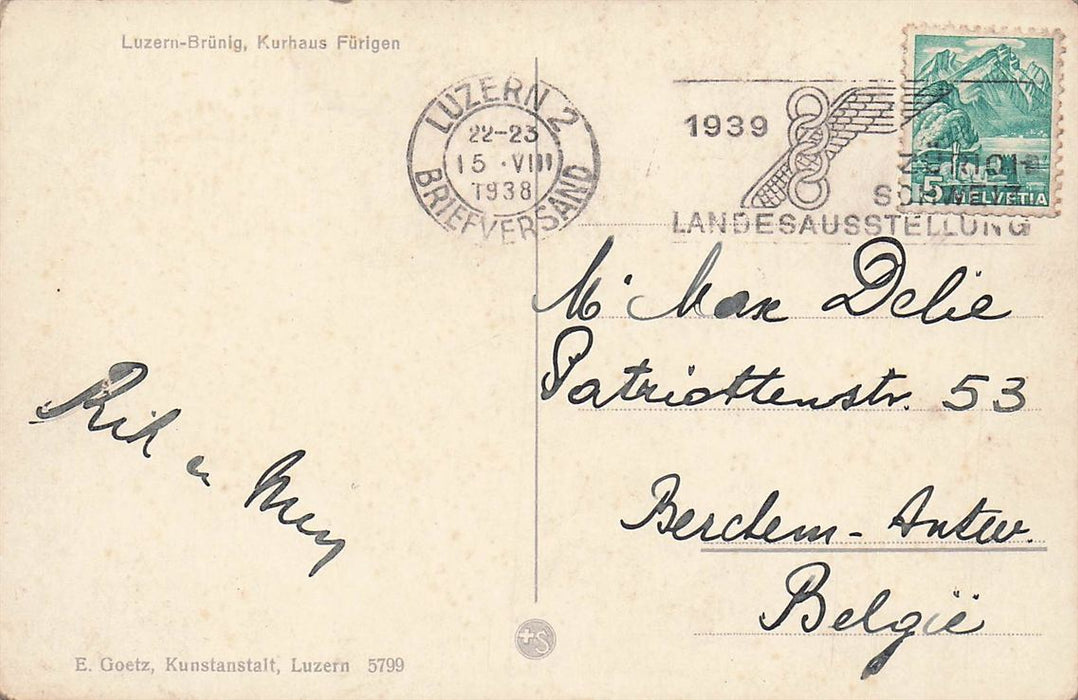 Luzern-Brünig, Kurhaus Fürigen
LUZERN 2
22-23
15·VIII
1938
BRIEFVERSAND
1939
ZÜRICH
SCHWEIZ.
LANDESAUSSTELLUNG
5 HELVETIA
Mr Max Delie
Patriottenstr. 53
Berchem - Antw.
België
Rik en
+S
E. Goetz, Kunstanstalt, Luzern 5799